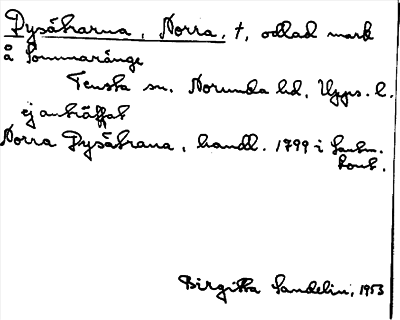 Pysåkrarna, Norra, †, odlad mark
å Sommaränge
Tensta sn. Norunda hd, Upps. l.
ej anträffat
Norra Pysåkrana, handl. 1799 i Lantm.
kont.
Birgitta Sandelin, 1953